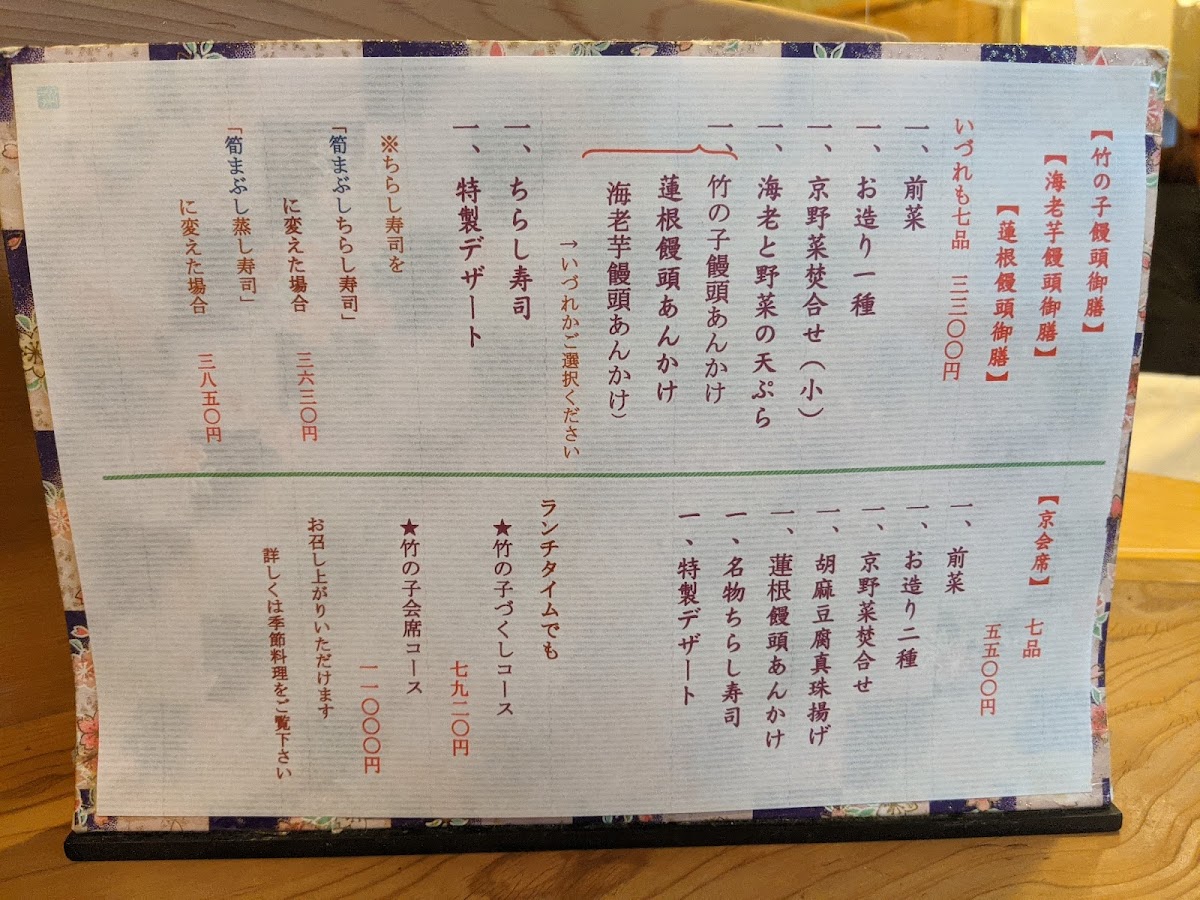 【竹の子饅頭御膳】
【海老芋饅頭御膳】
【蓮根饅頭御膳】
いづれも七品 三三〇〇円
一、前菜
一、お造り一種
一、京野菜焚合せ（小）
一、海老と野菜の天ぷら
一、竹の子饅頭あんかけ
蓮根饅頭あんかけ
海老芋饅頭あんかけ）
→いづれかご選択ください
一、ちらし寿司
一、特製デザート
※ちらし寿司を
「筍まぶしちらし寿司」
に変えた場合 三六三〇円
「筍まぶし蒸し寿司」
に変えた場合 三八五〇円
【京会席】 七品
五五〇〇円
一、前菜
一、お造り二種
一、京野菜焚合せ
一、胡麻豆腐真珠揚げ
一、蓮根饅頭あんかけ
一、名物ちらし寿司
一、特製デザート
ランチタイムでも
★竹の子づくしコース
七九二〇円
★竹の子会席コース
一一〇〇〇円
お召し上がりいただけます
詳しくは季節料理をご覧下さい